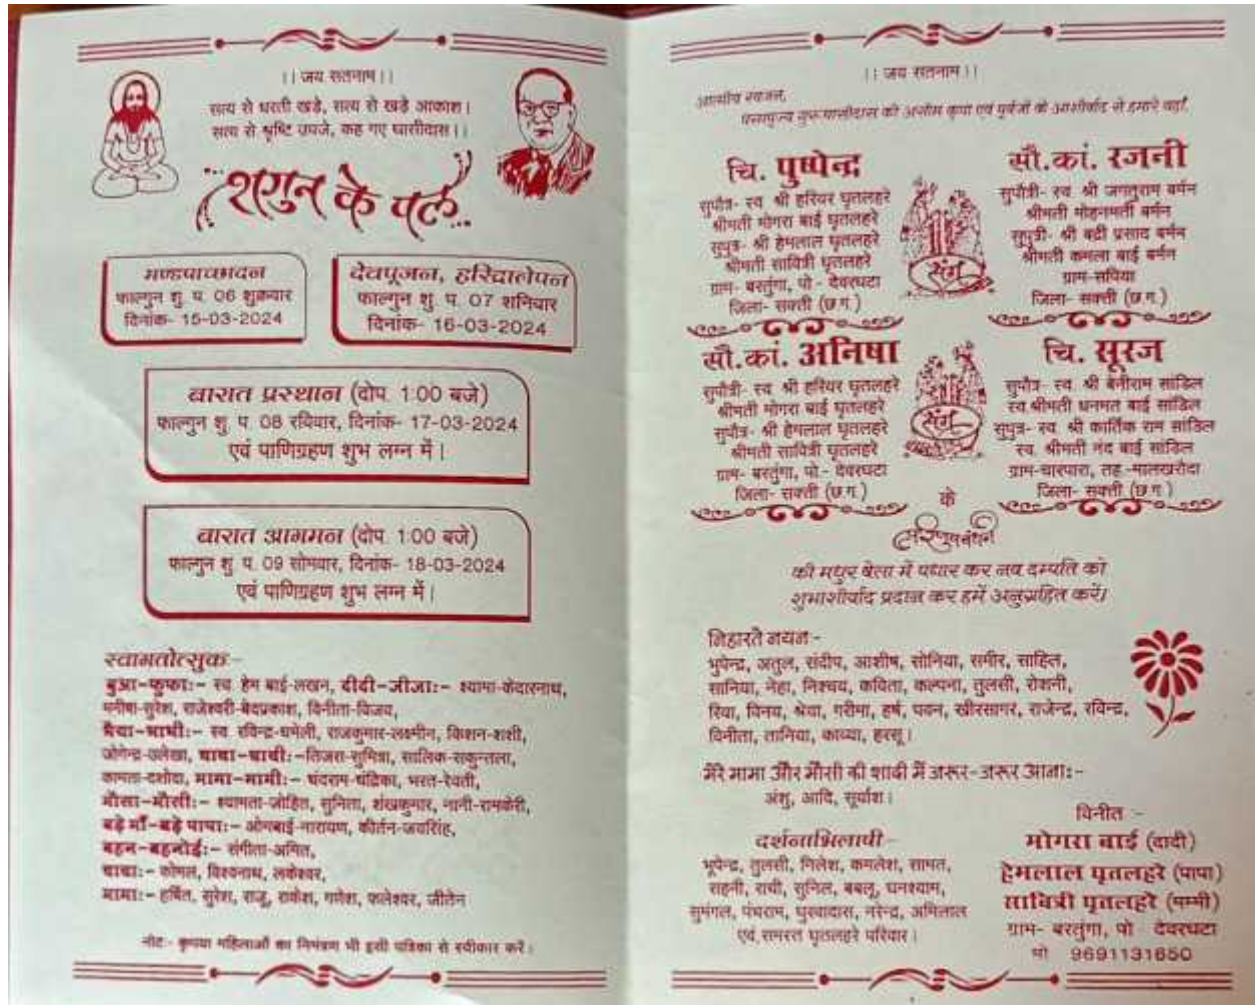 ।। जय सतनाम।।
सत्य से धरती खड़े, सत्य से खड़े आकाश।
सत्य से श्रृष्टि उपजे, कह गए घासीदास।।
शगुन के पल
मण्डपाच्छादन
फाल्गुन शु. प. 06 शुक्रवार
दिनांक- 15-03-2024
देवपूजन, हरिद्रालेपन
फाल्गुन शु. प. 07 शनिवार
दिनांक- 16-03-2024
बारात प्रस्थान (दोप. 1:00 बजे)
फाल्गुन शु. प. 08 रविवार, दिनांक- 17-03-2024
एवं पाणिग्रहण शुभ लग्न में।
बारात आगमन (दोप. 1:00 बजे)
फाल्गुन शु. प. 09 सोमवार, दिनांक- 18-03-2024
एवं पाणिग्रहण शुभ लग्न में।
स्वागतोत्सुक:-
बुआ-फुफा:- स्व. हेम बाई-लखन, दीदी-जीजा:- श्यामा-केदारनाथ,
मनीषा-सुरेश, राजेश्वरी-वेदप्रकाश, विनीता-विजय,
भैया-भाभी:- स्व. रविन्द्र-चमेली, राजकुमार-लक्ष्मीन, किशन-शशी,
जोगेन्द्र-उलेखा, चाचा-चाची:-तिजरा-सुमित्रा, सालिक-सकुन्तला,
कामता-दशोदा, मामा-मामी:- चंदराम-चंद्रिका, भरत-रेवती,
मौसा-मौसी:- श्यामता-जोहित, सुनिता, शंखकुमार, नानी-रामकेरी,
बड़े माँ-बड़े पापा:- ओगबाई-नारायण, कीर्तन-जयसिंह,
बहन-बहनोई:- संगीता-अमित,
चाचा:- कोमल, विश्वनाथ, लकेश्वर,
मामा:- हर्षित, सुरेश, राजू, राकेश, गणेश, फलेश्वर, जीतेन
नोट:- कृपया महिलाओं का निमंत्रण भी इसी पत्रिका से स्वीकार करें।
।। जय सतनाम।।
आत्मीय स्वजन,
परमपूज्य गुरू घासीदास की असीम कृपा एवं पूर्वजों के आशीर्वाद से हमारे यहाँ,
चि. पुष्पेन्द्र
सुपौत्र- स्व. श्री हरियर घृतलहरे
श्रीमती मोगरा बाई घृतलहरे
सुपुत्र- श्री हेमलाल घृतलहरे
श्रीमती सावित्री घृतलहरे
ग्राम- बरतुंगा, पो.- देवरघटा
जिला- सक्ती (छ.ग.)
संग
सौ.कां. रजनी
सुपौत्री- स्व. श्री जगतुराम बर्मन
श्रीमती मोहनमती बर्मन
सुपुत्री- श्री बद्री प्रसाद बर्मन
श्रीमती कमला बाई बर्मन
ग्राम-सपिया
जिला- सक्ती (छ.ग.)
सौ.कां. अनिषा
सुपौत्री- स्व. श्री हरियर घृतलहरे
श्रीमती मोगरा बाई घृतलहरे
सुपौत्र- श्री हेमलाल घृतलहरे
श्रीमती सावित्री घृतलहरे
ग्राम- बरतुंगा, पो.- देवरघटा
जिला- सक्ती (छ.ग.)
संग
चि. सूरज
सुपौत्र- स्व. श्री बेनीराम सांडिल
स्व. श्रीमती धनमत बाई सांडिल
सुपुत्र- स्व. श्री कार्तिक राम सांडिल
स्व. श्रीमती नंद बाई सांडिल
ग्राम-चारपारा, तह.-मालखरौदा
जिला- सक्ती (छ.ग.)
के
परिणयबंधन
की मधुर बेला में पधार कर नव दम्पति को
शुभाशीर्वाद प्रदान कर हमें अनुग्रहित करें।
निहारते नयन:-
भुपेन्द्र, अतुल, संदीप, आशीष, सोनिया, समीर, साहिल,
सानिया, नेहा, निश्चय, कविता, कल्पना, तुलसी, रोशनी,
रिया, विनय, श्रेया, गरीमा, हर्ष, पवन, खीरसागर, राजेन्द्र, रविन्द्र,
विनीता, तानिया, काव्या, हरसू।
मेरे मामा और मौसी की शादी में जरूर-जरूर आना:-
अंशु, आदि, सूर्यांश।
दर्शनाभिलाषी:-
भूपेन्द्र, तुलसी, निलेश, कमलेश, सामत,
सहनी, राची, सुनिल, बबलू, घनश्याम,
सुमंगल, पंचराम, धुरवादास, नरेन्द्र, अमिलाल
एवं समस्त घृतलहरे परिवार।
विनीत :-
मोगरा बाई (दादी)
हेमलाल घृतलहरे (पापा)
सावित्री घृतलहरे (मम्मी)
ग्राम- बरतुंगा, पो. देवरघटा
मो. 9691131650